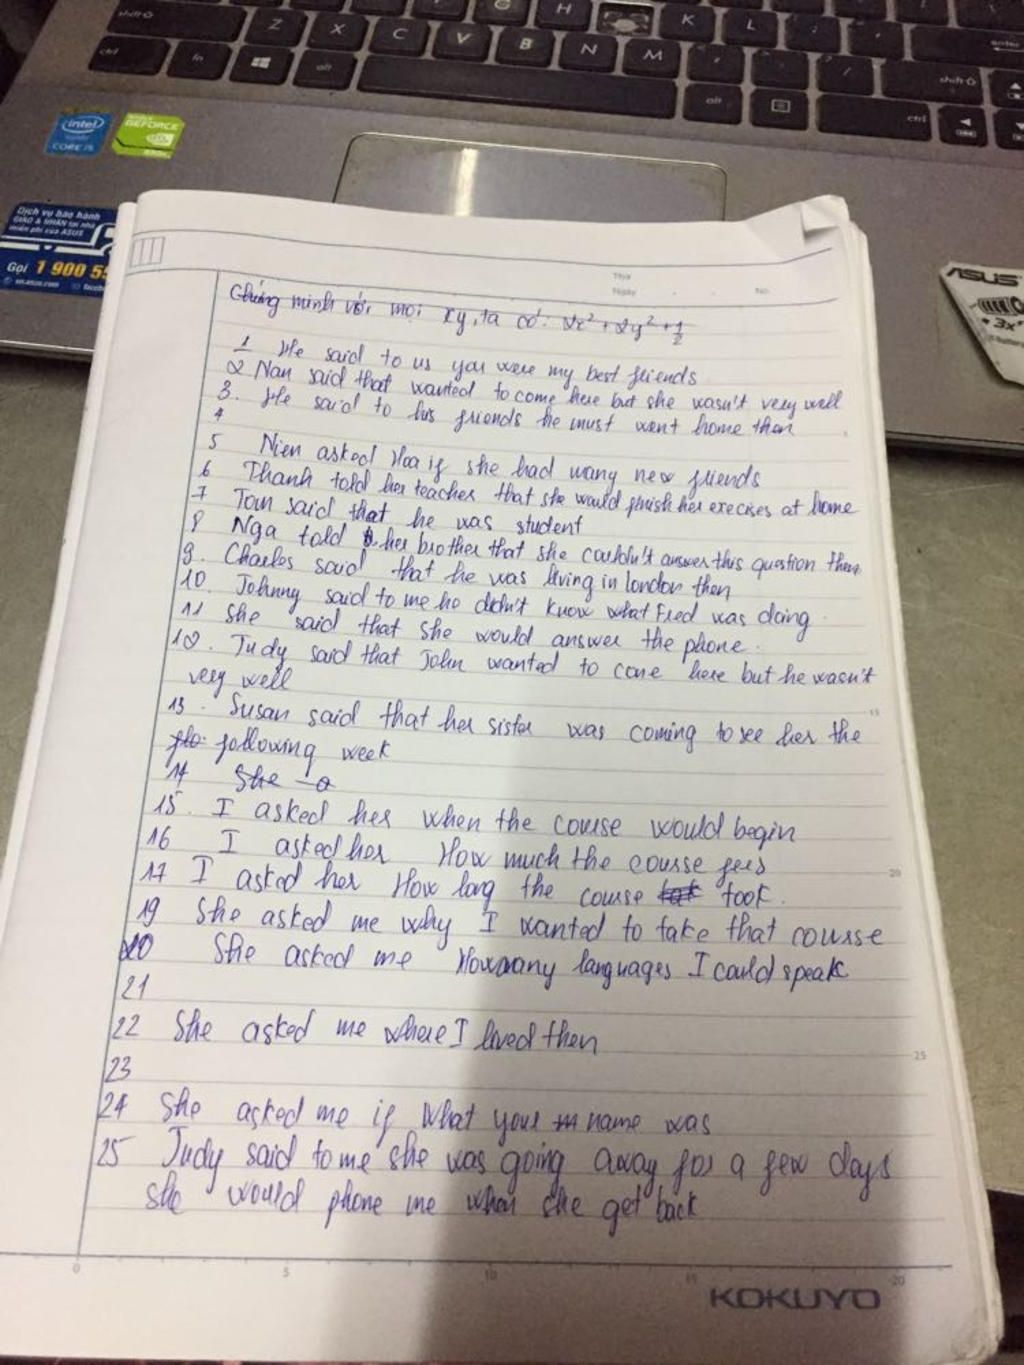 shift
Z X C V B N M
G H K L
ctrl fn alt alt ctrl
enter
shift
intel
CORE i5
GEFORCE
Dịch vụ bảo hành
GIAO & NHẬN tại nhà
miễn phí của ASUS
Gọi 1 900 55
ASUS
3x
Thứ
Ngày No.
Chứng minh với mọi xy, ta có: 2x² + 2y² + 1/2
1 He said to us you were my best friends
2 Nan said that wanted to come here but she wasn't very well
3. He said to his friends he must went home then
4
5 Nien asked Hoa if she had wany new friends
6 Thanh told her teacher that she would finish her execises at home
7 Tom said that he was student
8 Nga told her brother that she couldn't answer this question then
9. Charles said that he was living in london then
10. Johnny said to me he didn't know what Fred was doing.
11 She said that she would answer the phone.
12. Judy said that John wanted to come here but he wasn't
very well
13. Susan said that her sister was coming to see her the
flo. following week
14 She a
15. I asked her when the course would begin
16 I asked her How much the course fees
17 I asked her How long the course tak took.
19 She asked me why I wanted to take that course
20 She asked me How many languages I could speak
21
22 She asked me where I lived then
23
24 She asked me if what your m name was
25 Judy said to me she was going away for a few days
she would phone me when she get back
15
20
25
0 5 10 15 20
KOKUYO